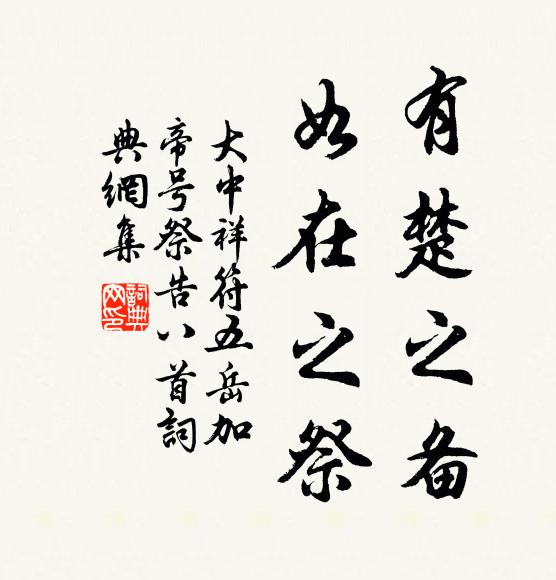 有楚之备
如在之祭
大中祥符五岳加
帝号祭告八首詞
典網集
詞典
网印